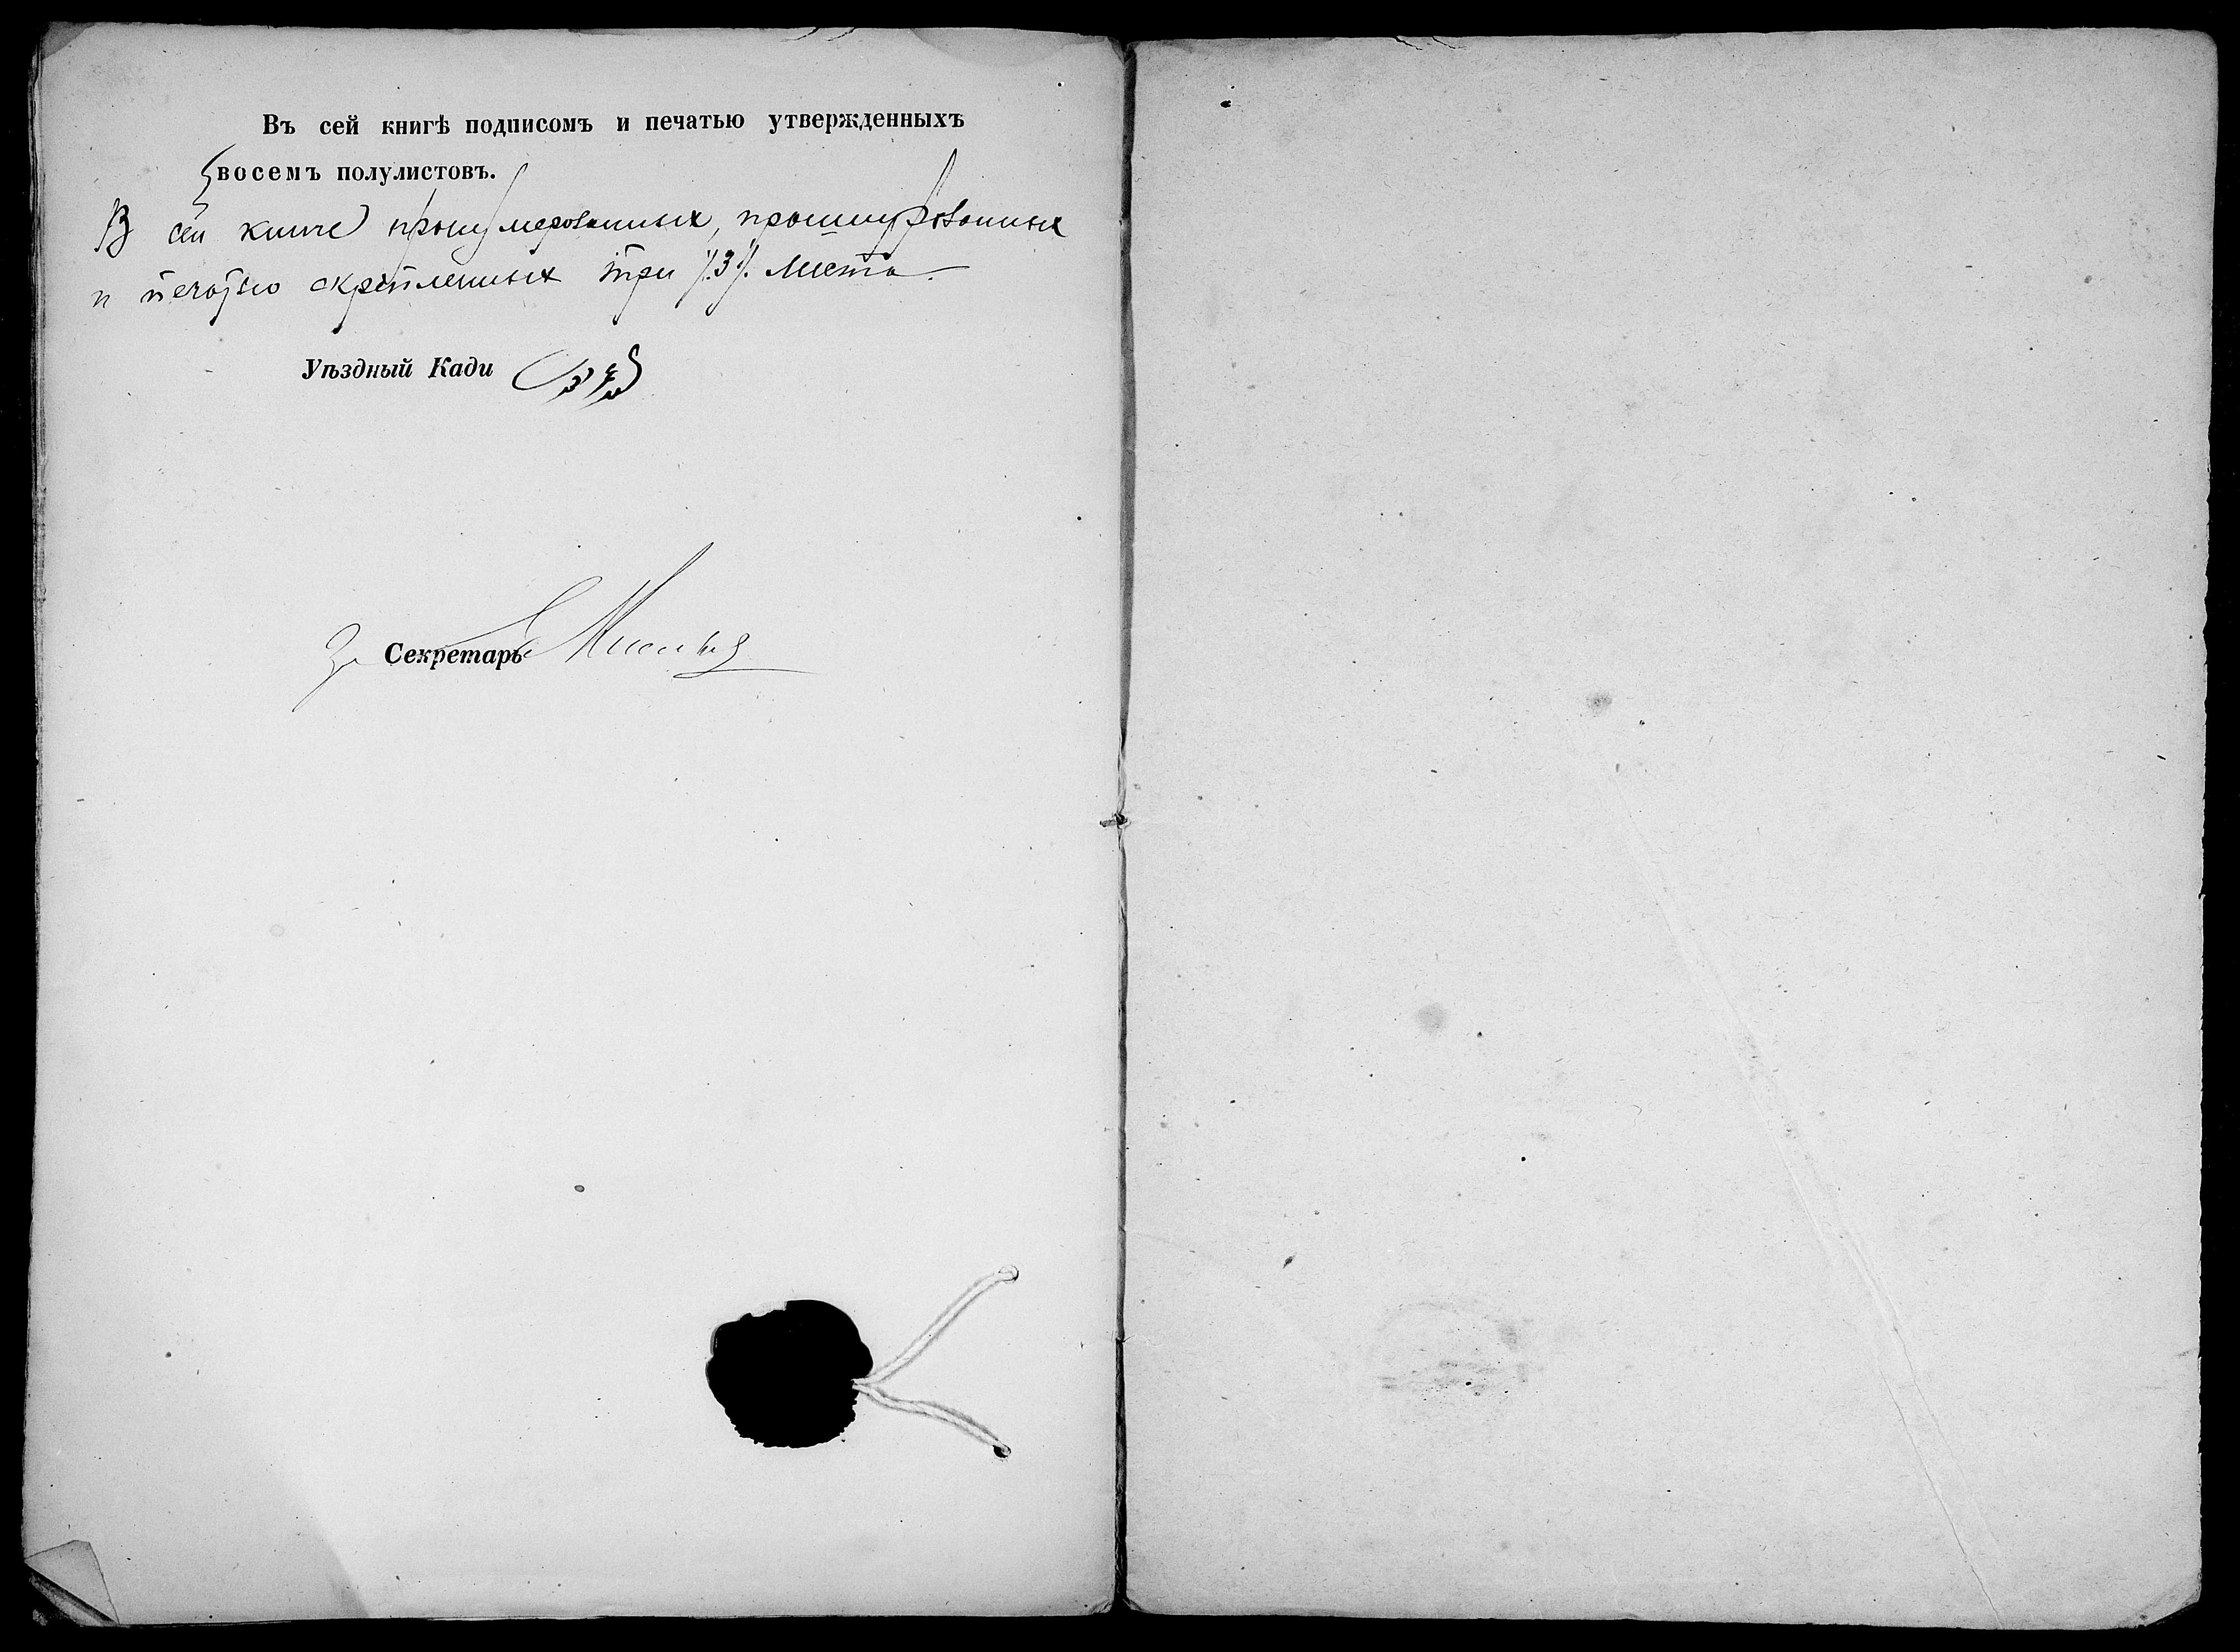 Въ сей книгѣ подписомъ и печатью утвержденныхъ
восемъ полулистовъ.
В сей книге пронумерованных, прошнурованных
и печатью скрепленных три /.3/. листа.
Уѣздный Кади
За Секретарь